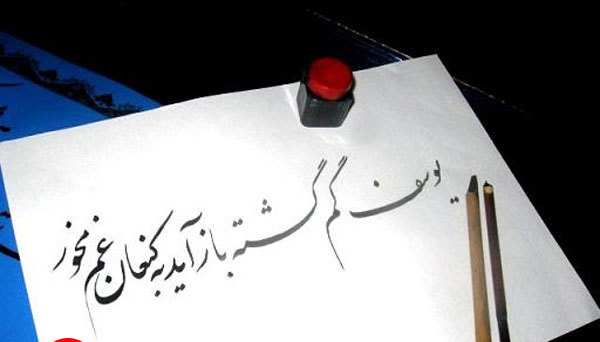 یوسف گم گشته بازآید به کنعان غم مخور